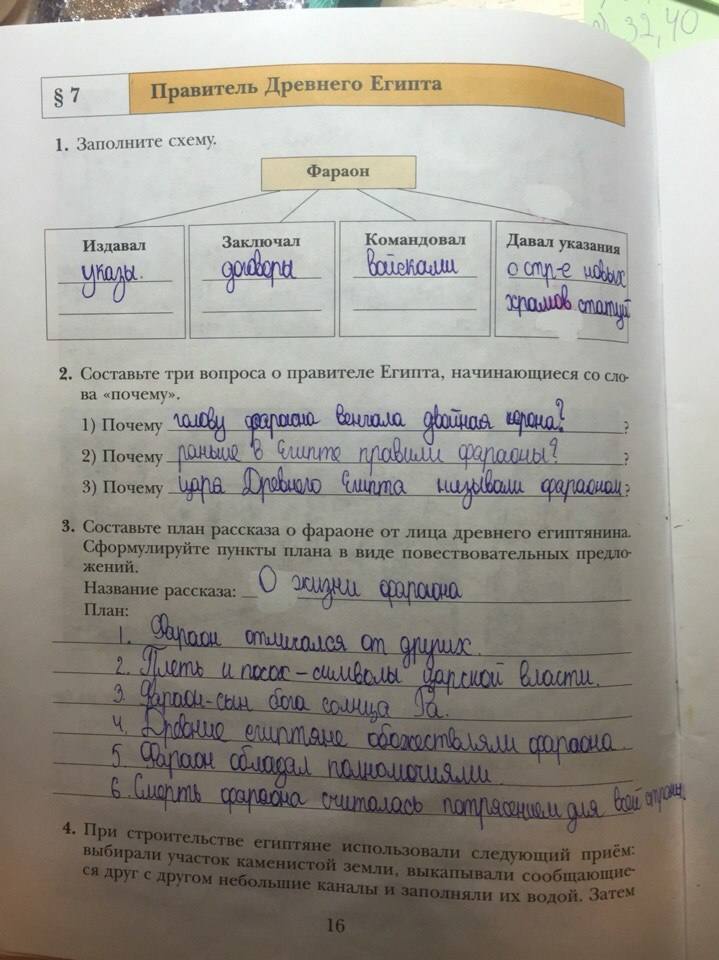 ) 32,40
§ 7
Правитель Древнего Египта
1. Заполните схему.
Фараон
Издавал
указы.
Заключал
договоры
Командовал
войсками
Давал указания
о стр-е новых
храмов статуй
2. Составьте три вопроса о правителе Египта, начинающиеся со сло-
ва «почему».
1) Почему голову фараона венчала двойная корона? ?
2) Почему раньше в Египте правили фараоны? ?
3) Почему царя Древнего Египта называли фараоном ?
3. Составьте план рассказа о фараоне от лица древнего египтянина.
Сформулируйте пункты плана в виде повествовательных предло-
жений.
Название рассказа: О жизни фараона
План:
1. Фараон отличался от других.
2. Плеть и посох – символы царской власти.
3. Фараон-сын бога солнца Ра.
4. Древние египтяне обожествляли фараона.
5. Фараон обладал полномочиями
6. Смерть фараона считалась потрясением для всей страны.
4. При строительстве египтяне использовали следующий приём:
выбирали участок каменистой земли, выкапывали сообщающие-
ся друг с другом небольшие каналы и заполняли их водой. Затем
16